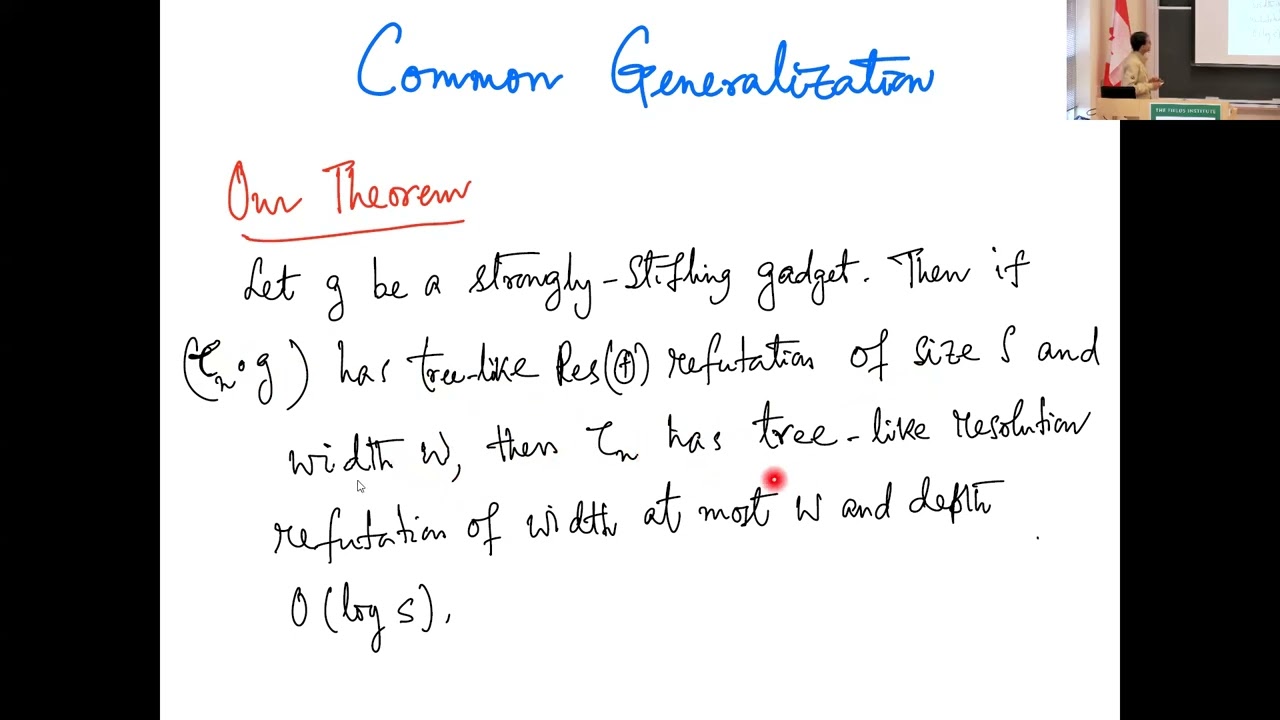 Common Generalization
Our Theorem
Let g be a strongly-stifling gadget. Then if
(τₙ∘g) has tree-like Res(⊕) refutation of size S and
width W, then τₙ has tree-like resolution
refutation of width at most W and depth
O(log S).
THE FIELDS INSTITUTE